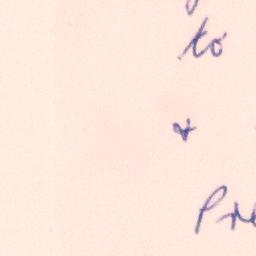 to
&
Pre